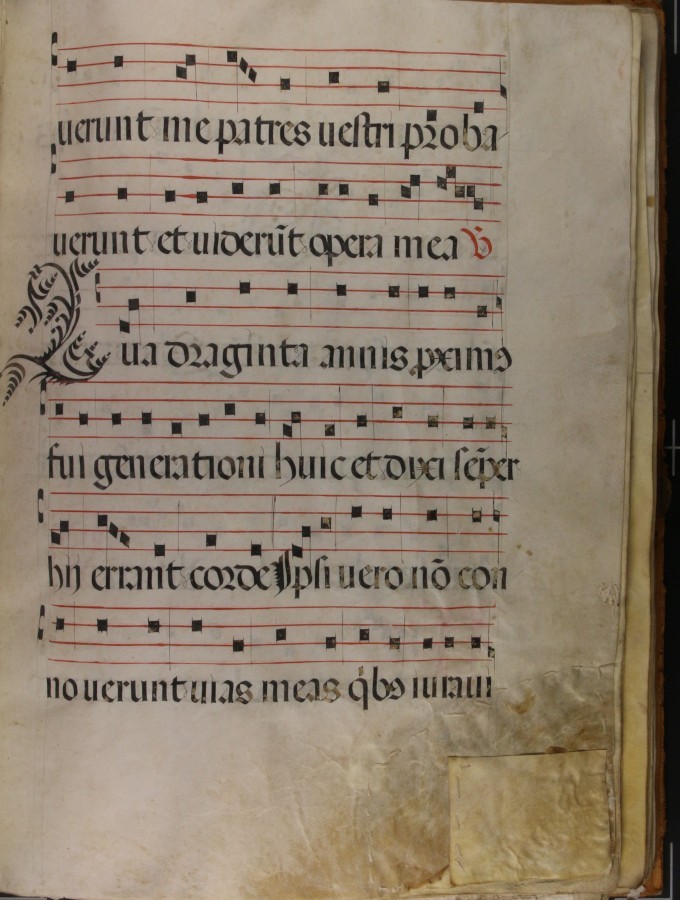 uerunt me patres uestri proba
uerunt et uiderūt opera mea ℣
Quadraginta annis ꝓximꝰ
fui generationi huic et dixi sēper
hij errant corde Ipsi uero nō con
nouerunt uias meas qͥbꝰ iuraui